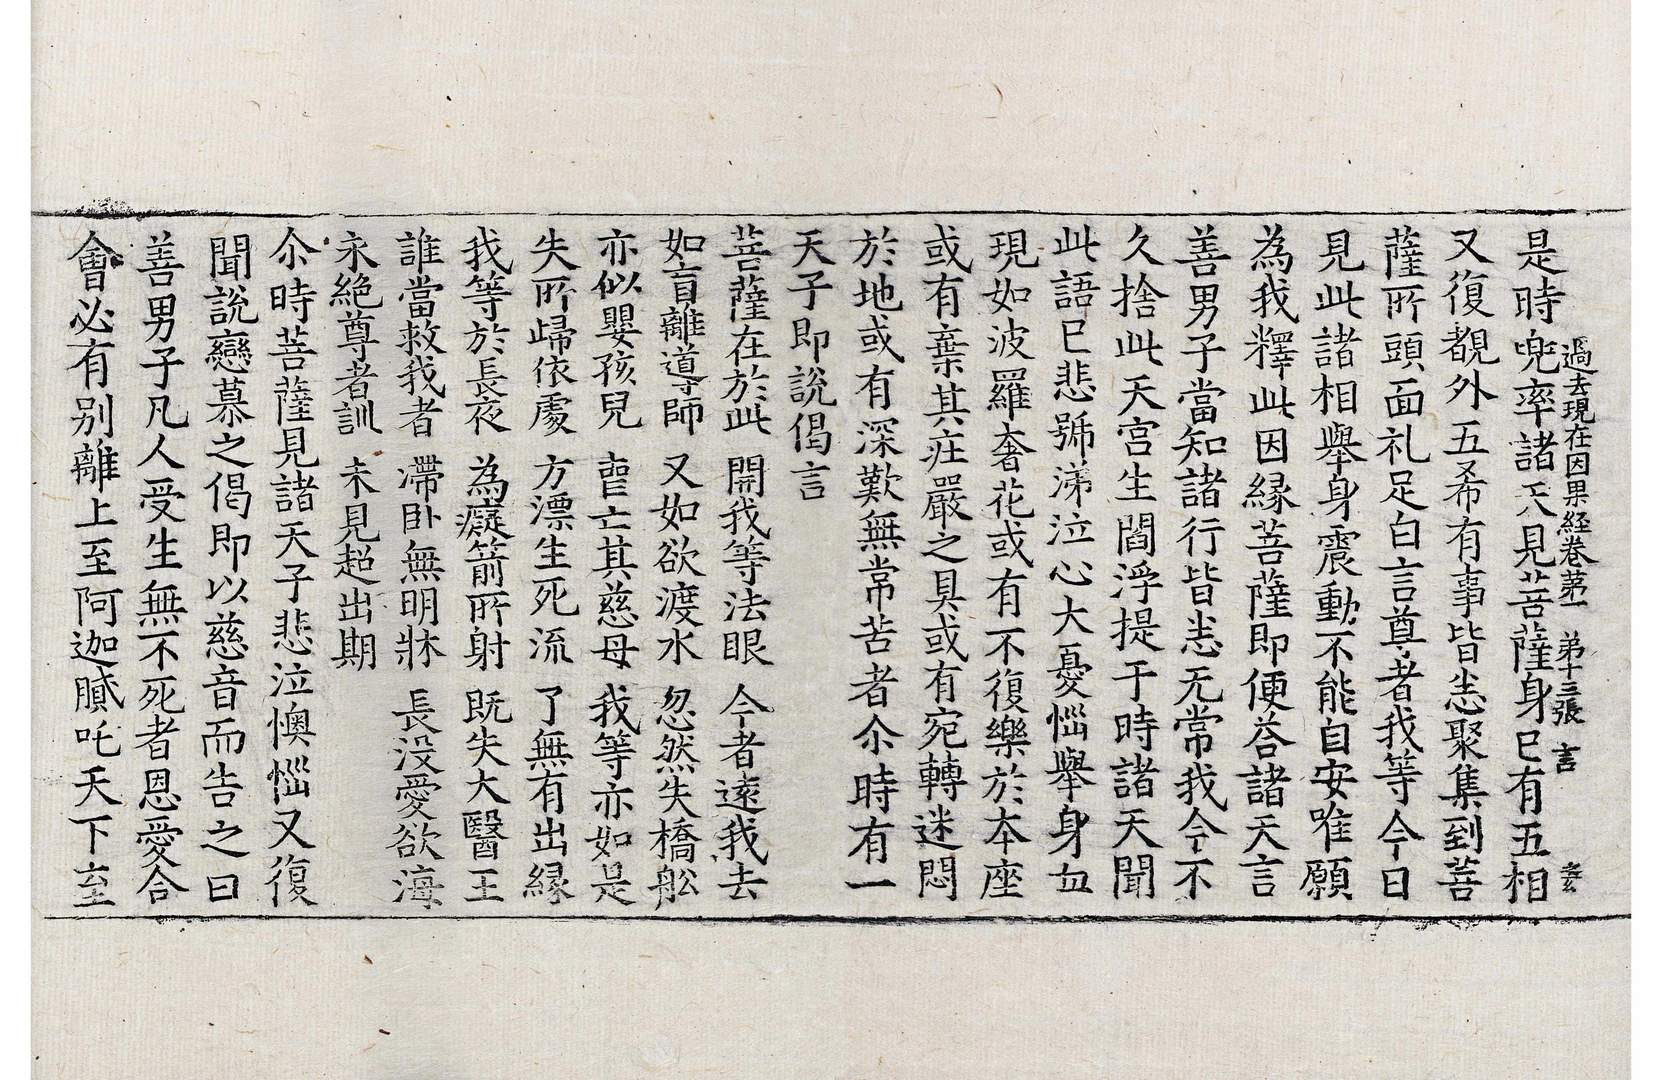 過去現在因果経卷苐一 弟十三張 言
是時兜率諸天見菩薩身已有五相
又復覩外五希有事皆悉聚集到菩
薩所頭面礼足白言尊者我等今日
見此諸相舉身震動不能自安唯願
為我釋此因緣菩薩即便荅諸天言
善男子當知諸行皆悉无常我今不
久捨此天宮生閻浮提于時諸天聞
此語已悲號涕泣心大憂惱舉身血
現如波羅奢花或有不復樂於本座
或有棄其庄嚴之具或有宛轉迷悶
於地或有深歎無常苦者尒時有一
天子即說偈言
菩薩在於此 開我等法眼 今者遠我去
如盲離導師 又如欲渡水 忽然失橋舩
亦似嬰孩兒 喪亡其慈母 我等亦如是
失所歸依處 方漂生死流 了無有出緣
我等於長夜 為癡箭所射 既失大醫王
誰當救我者 滯卧無明牀 長没愛欲海
永絕尊者訓 未見超出期
尒時菩薩見諸天子悲泣懊惱又復
聞說戀慕之偈即以慈音而告之曰
善男子凡人受生無不死者恩愛合
會必有別離上至阿迦膩吒天下至